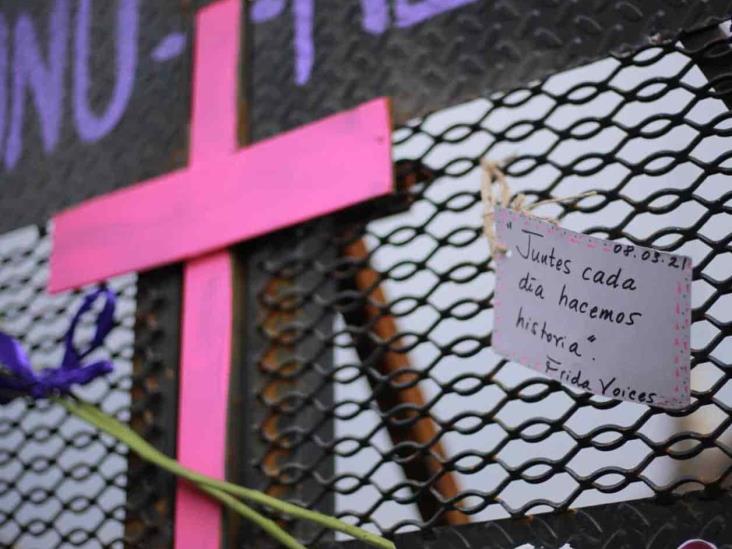 NU
08.03.21
"Juntes cada
día hacemos
historia".
Frida Voices